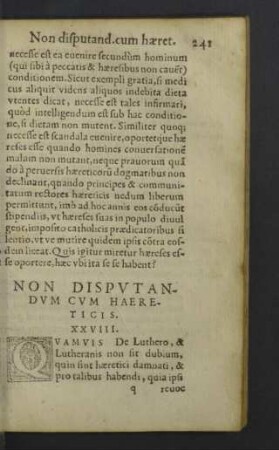 Non disputand. cum hæret. 241
necesse est ea euenire secundùm hominum
(qui sibi à peccatis & hæresibus non cauēt)
conditionem. Sicut exempli gratia, si medi
cus aliquit videns aliquos indebita diæta
vtentes dicat, necesse est tales infirmari,
quòd intelligendum est sub hac conditio-
ne, si dictam non mutent. Similiter quoq;
necesse est scandala euenire, oportetque hæ
reses esse quando homines conuersationē
malam non mutant, neque prauorum quā
do à peruersis hæreticorū dogmatibus non
declinant, quando principes & communi-
tatum rectores hæreticis nedum liberum
permittunt, imò ad hoc annis eos cōducūt
stipendiis, vt hæreses suas in populo diuul
gent, imposito catholicis prædicatoribus si
lentio, vt ve mutire quidem ipsis cōtra eos-
dem liceat. Quis igitur miretur hæreses es-
se oportere, hæc vbi ita se se habent?
NON DISPVTAN-
DVM CVM HAERE-
TICIS.
XXVIII.
QVAMVIS De Luthero, &
Lutheranis non sit dubium,
quin sint hæretici damnati, &
pro talibus habendi, quia ipsi
q reuoc